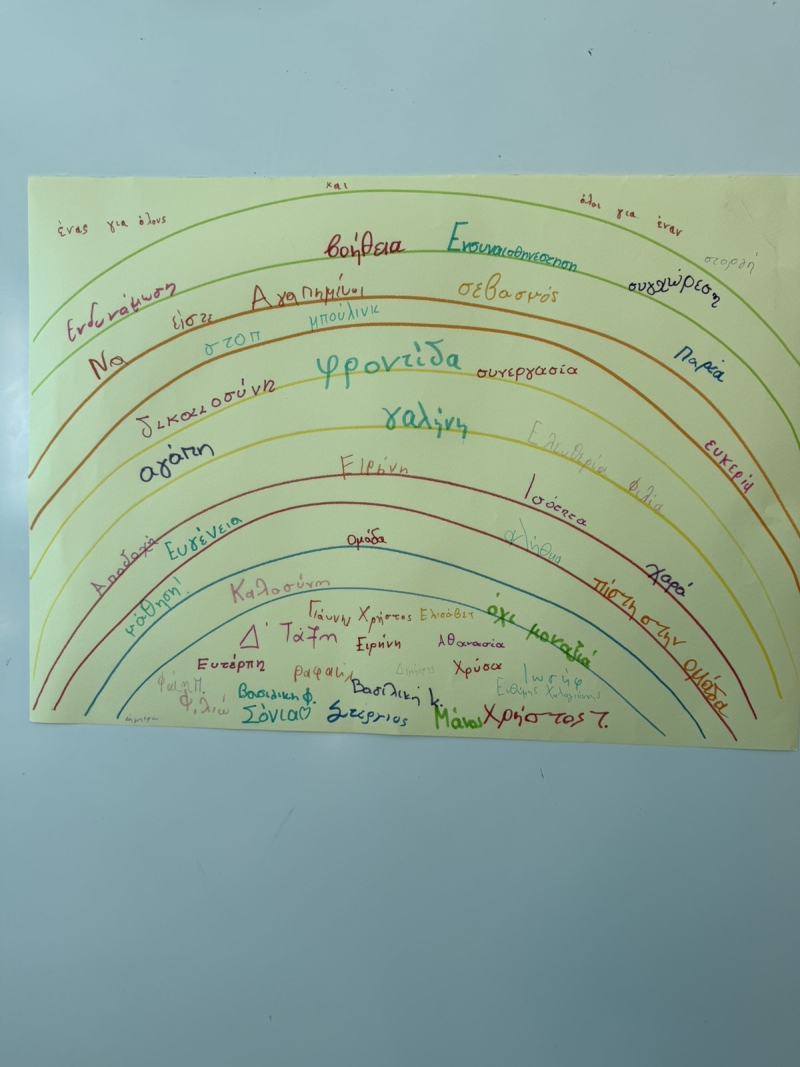 ένας για όλους και όλοι για έναν
στοργή
βοήθεια Ενσυναισθηνεστηση
Ενδυνάμωση συγχώρεση
Να είστε Αγαπημένοι σεβασμός
στοπ μπούλινκ Παρέα
φροντίδα συνεργασία
δικαιοσύνη ευκερία
αγάπη γαλήνη Ελευθερία Φιλία
Ειρήνη Ισότητα
Αποδοχή Ευγένεια χαρά
ομάδα
μάθηση! Καλοσύνη πίστη στην ομάδα
Γιάννης Χρήστος Ελισάβετ όχι μοναξιά
Δ' Τάξη Ειρήνη Αθανασία
Ευτέρπη ραφαήλ Χρύσα Ιωσήφ
Βασιλική φ. Βασιλική κ. Ευθύμης
Φιλιώ Σόνια♡ Στέργιος Μάνος Χρήστος Τ.
Δήμητρα